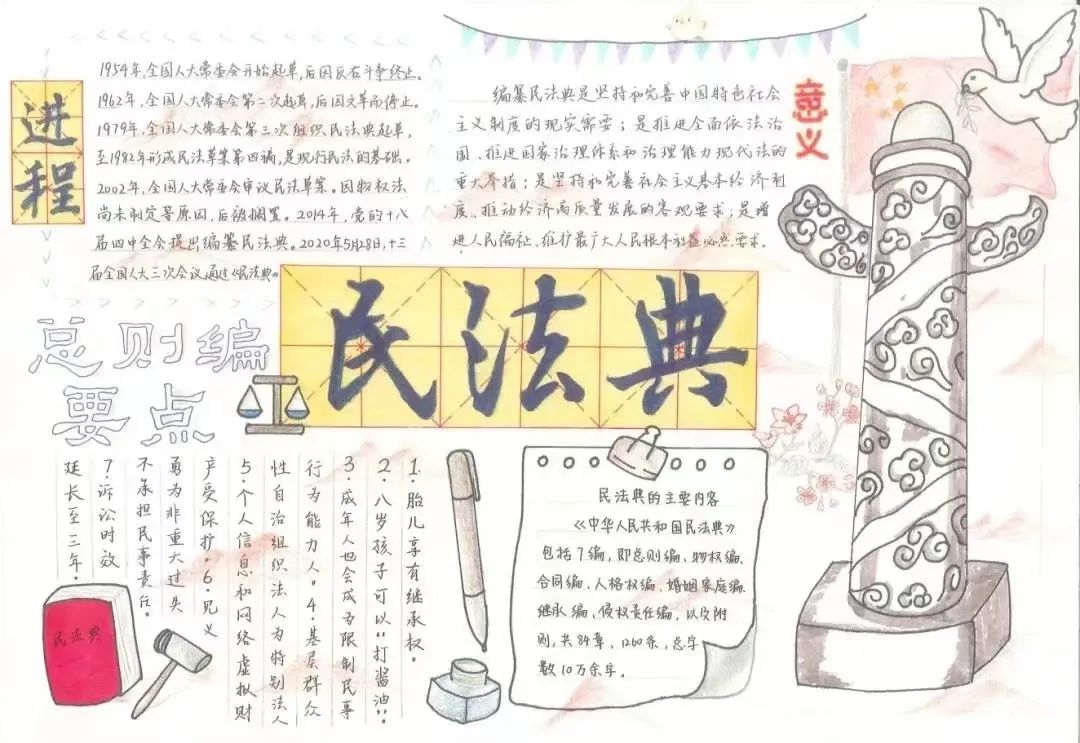 进程
1954年,全国人大常委会开始起草,后因反右斗争终止。
1962年,全国人大常委会第二次起草,后因文革而停止。
1979年,全国人大常委会第三次组织民法典起草,
至1982年形成民法草案第四稿,是现行民法的基础。
2002年,全国人大常委会审议民法草案。因物权法
尚未制定等原因,后被搁置。2014年,党的十八
届四中全会提出编纂民法典。2020年5月28日,十三
届全国人大三次会议通过《民法典》
意义
编纂民法典是坚持和完善中国特色社会
主义制度的现实需要;是推进全面依法治
国、推进国家治理体系和治理能力现代法的
重大举措;是坚持和完善社会主义基本经济制
度、推动经济高质量发展的客观要求;是增
进人民福祉、维护最广大人民根本利益必然要求。
民法典
总则编
要点
1.胎儿享有继承权。
2.八岁孩子可以“打酱油”。
3.成年人也会成为限制民事
行为能力人。4.基层群众
性自治组织法人为特别法人
5.个人信息和网络虚拟财
产受保护.6.见义
勇为非重大过失
不承担民事责任。
7.诉讼时效
延长至三年。
民法典
民法典的主要内容
《中华人民共和国民法典》
包括7编,即总则编、物权编、
合同编、人格权编、婚姻家庭编
继承编、侵权责任编,以及附
则,共84章,1260条,总字
数10万余字。